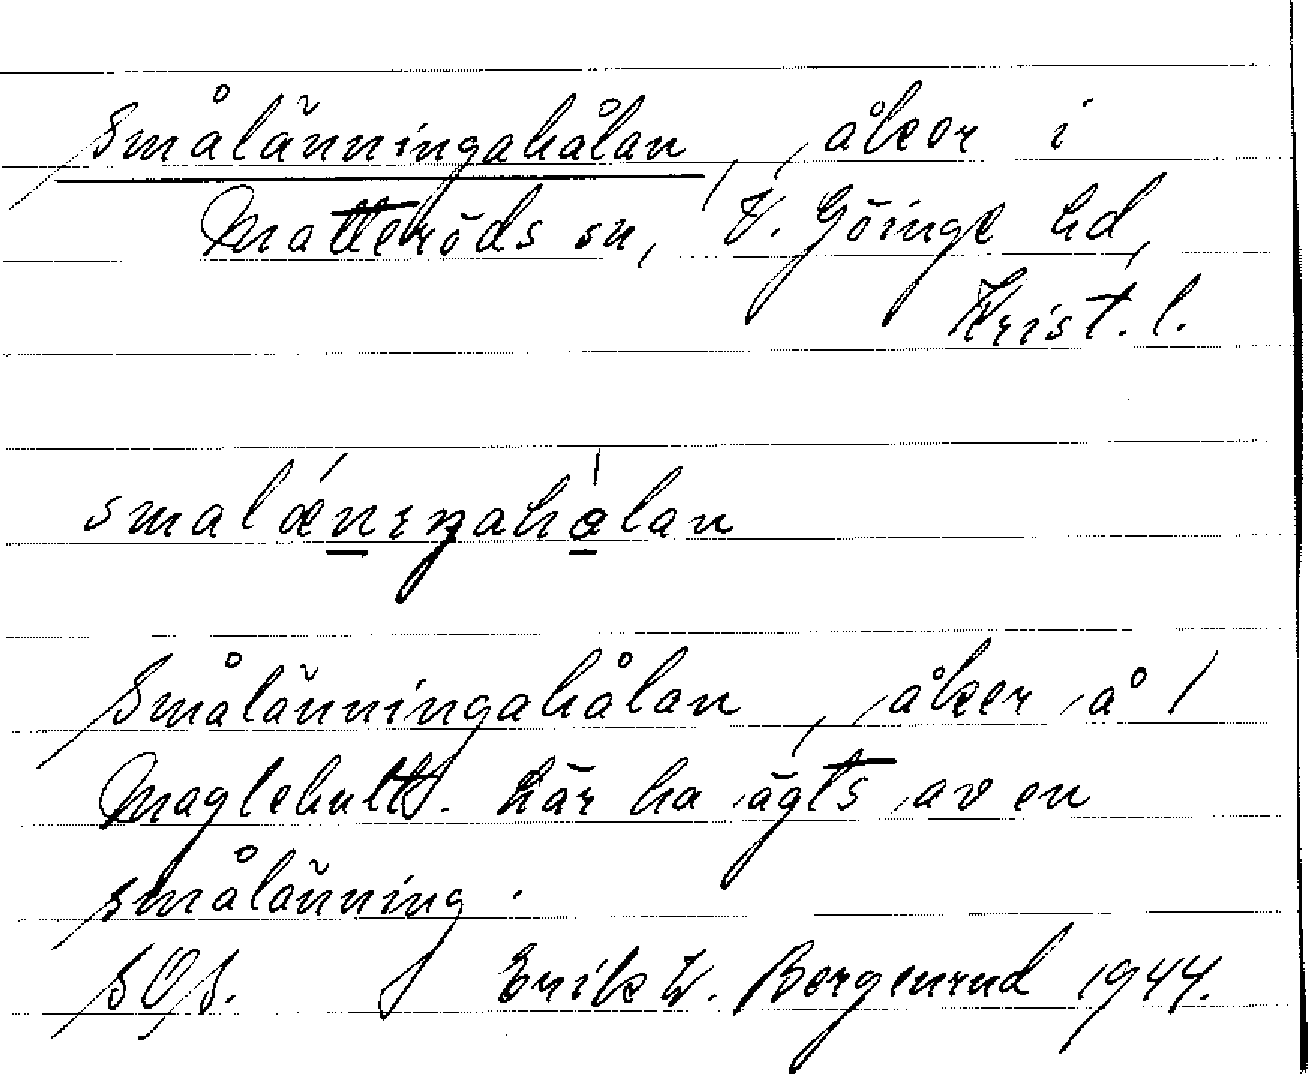 Smålänningahålan, åker i
Matteröds sn, V. Göinge hd,
Krist. l.
smalǽnıŋahålan
Smålänningahålan, åker å 1
Maglehult. Här ha ägts av en
smålänning.
SOS. Erik W. Bergenrud 1944.